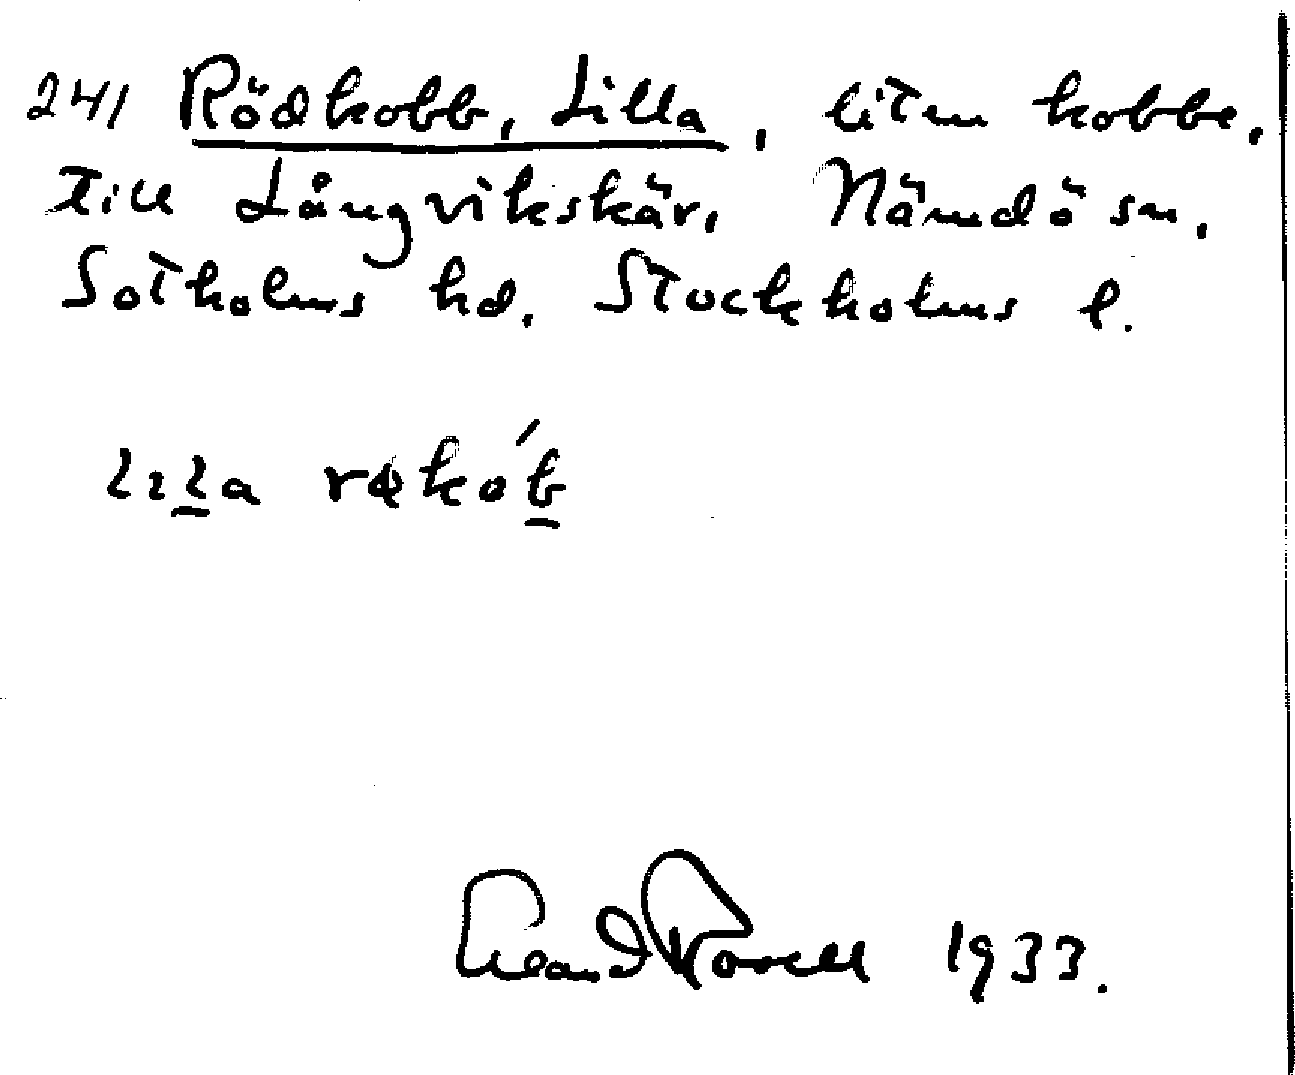 241 Rödkobb, Lilla, liten kobbe,
till Långvikskär, Nämdö sn,
Sotholms hd, Stockholms l.
1933.